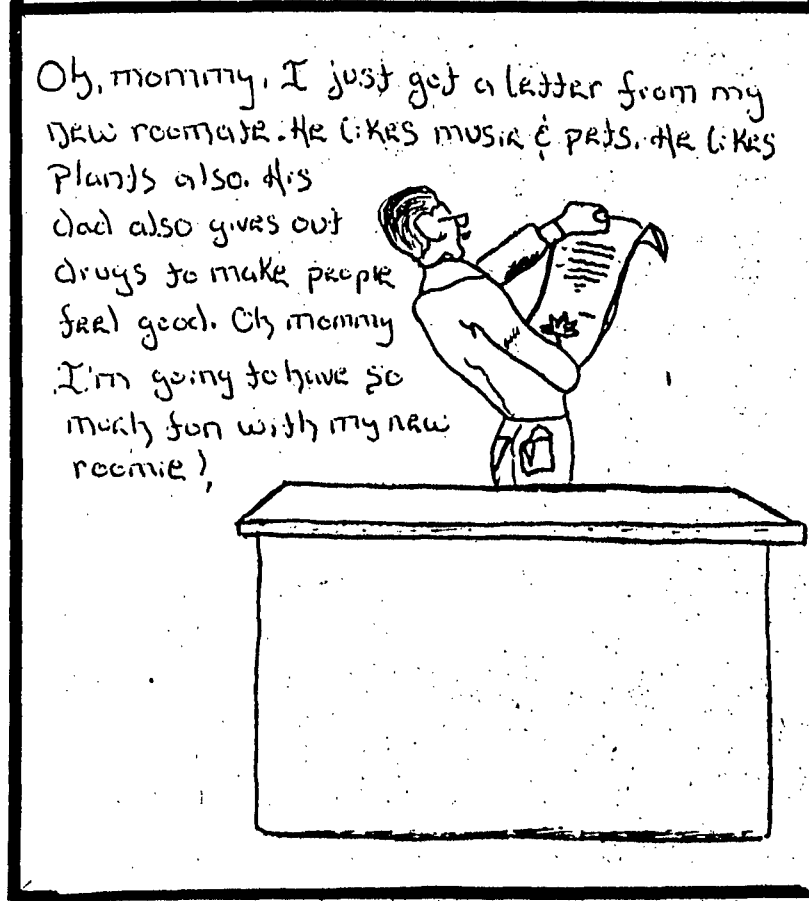 Oh, mommy, I just got a letter from my
new roomate. He likes music & pets. He likes
Plants also. His
dad also gives out
drugs to make people
feel good. Oh mommy
I'm going to have so
much fun with my new
roomie!